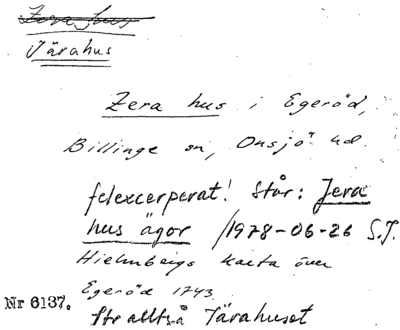 Zera hus
Järahus
Zera hus i Egeröd,
Billinge sn, Onsjö hd.
felexcerperat! Står: Jera
hus ägor /1978-06-26 S.J.
Hielmbergs karta över
Egeröd 1743.
Nr 6137.
Str alltså Järahuset